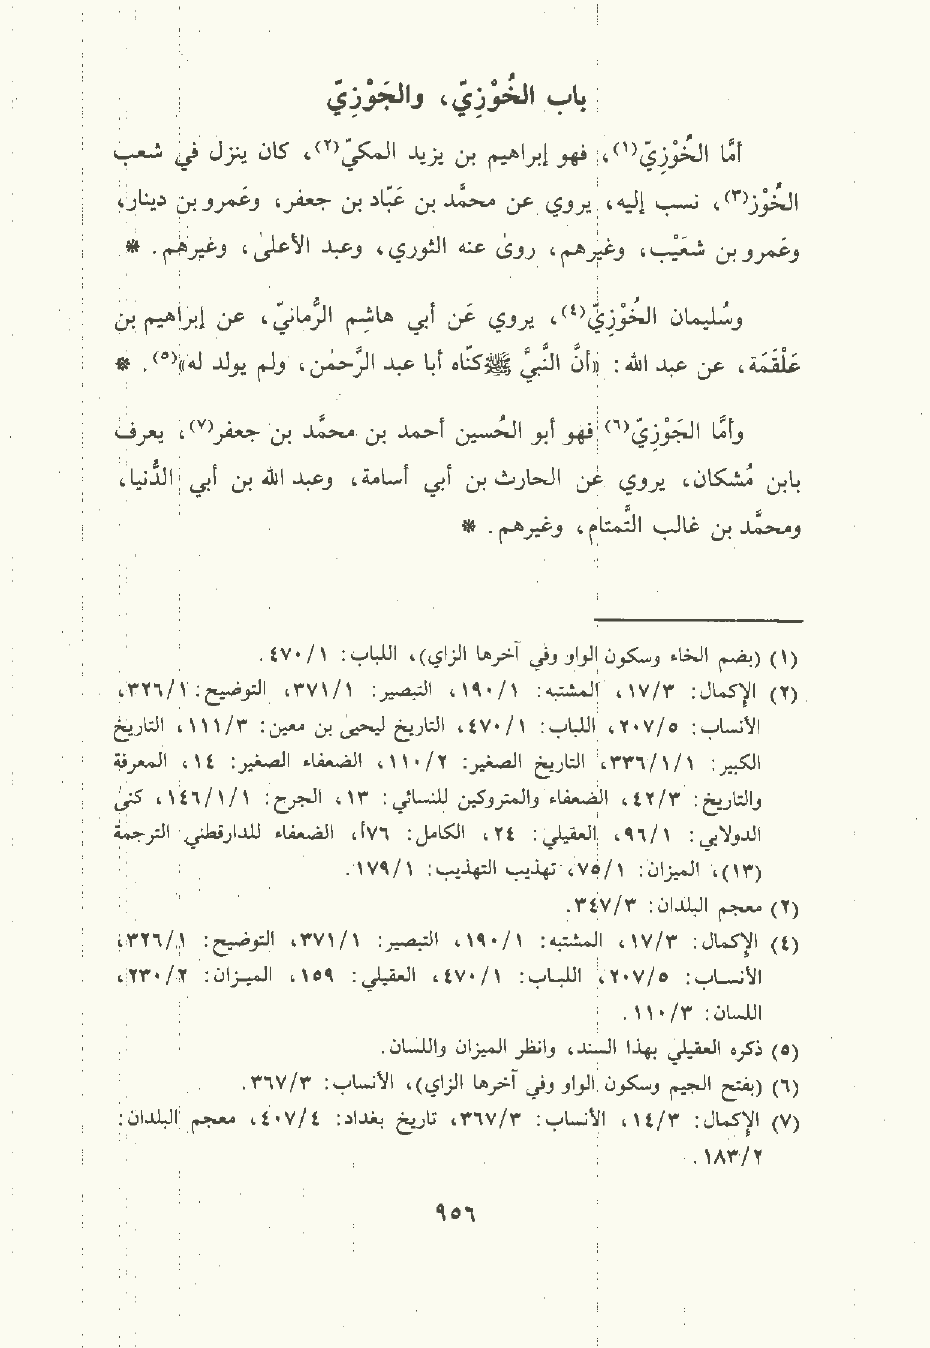 باب الخُوْزِيّ، والجَوْزِيّ
أمَّا الخُوْزِيّ(١)، فهو إبراهيم بن يزيد المكيّ(٢)، كان ينزل في شعب
الخُوْز(٣)، نسب إليه، يروي عن محمَّد بن عَبَّاد بن جعفر، وعَمرو بن دينار،
وعَمرو بن شعَيْب، وغيرهم، روىٰ عنه الثوري، وعبد الأعلىٰ، وغيرهم. *
وسُليمان الخُوْزِيّ(٤)، يروي عَن أبي هاشِم الرُّمانيّ، عن إبراهيم بن
عَلْقَمَة، عن عبد الله: «أنَّ النَّبيَّ ﷺ كنّاه أبا عبد الرَّحمٰن، ولم يولد له»(٥). *
وأمَّا الجَوْزِيّ(٦) فهو أبو الحُسين أحمد بن محمَّد بن جعفر(٧)، يعرف
بابن مُشكان، يروي عن الحارث بن أبي أسامة، وعبد الله بن أبي الدُّنيا،
ومحمَّد بن غالب التَّمتام، وغيرهم. *
(١) (بضم الخاء وسكون الواو وفي آخرها الزاي)، اللباب: ١/ ٤٧٠.
(٢) الإكمال: ١٧/٣، المشتبه: ١٩٠/١، التبصير: ٣٧١/١، التوضيح: ٣٢٦/١،
الأنساب: ٢٠٧/٥، اللباب: ٤٧٠/١، التاريخ ليحيىٰ بن معين: ١١١/٣، التاريخ
الكبير: ٣٣٦/١/١، التاريخ الصغير: ١١٠/٢، الضعفاء الصغير: ١٤، المعرفة
والتاريخ: ٤٢/٣، الضعفاء والمتروكين للنسائي: ١٣، الجرح: ١٤٦/١/١، كنىٰ
الدولابي: ٩٦/١، العقيلي: ٢٤، الكامل: ٧٦أ، الضعفاء للدارقطني الترجمة
(١٣)، الميزان: ٧٥/١، تهذيب التهذيب: ١٧٩/١.
(٢) معجم البلدان: ٣٤٧/٣.
(٤) الإكمال: ١٧/٣، المشتبه: ١٩٠/١، التبصير: ٣٧١/١، التوضيح: ٣٢٦/١،
الأنساب: ٢٠٧/٥، اللباب: ٤٧٠/١، العقيلي: ١٥٩، الميزان: ٢٣٠/٢،
اللسان: ١١٠/٣.
(٥) ذكره العقيلي بهذا السند، وانظر الميزان واللسان.
(٦) (بفتح الجيم وسكون الواو وفي آخرها الزاي)، الأنساب: ٣٦٧/٣.
(٧) الإكمال: ١٤/٣، الأنساب: ٣٦٧/٣، تاريخ بغداد: ٤٠٧/٤، معجم البلدان:
١٨٣/٢.
٩٥٦